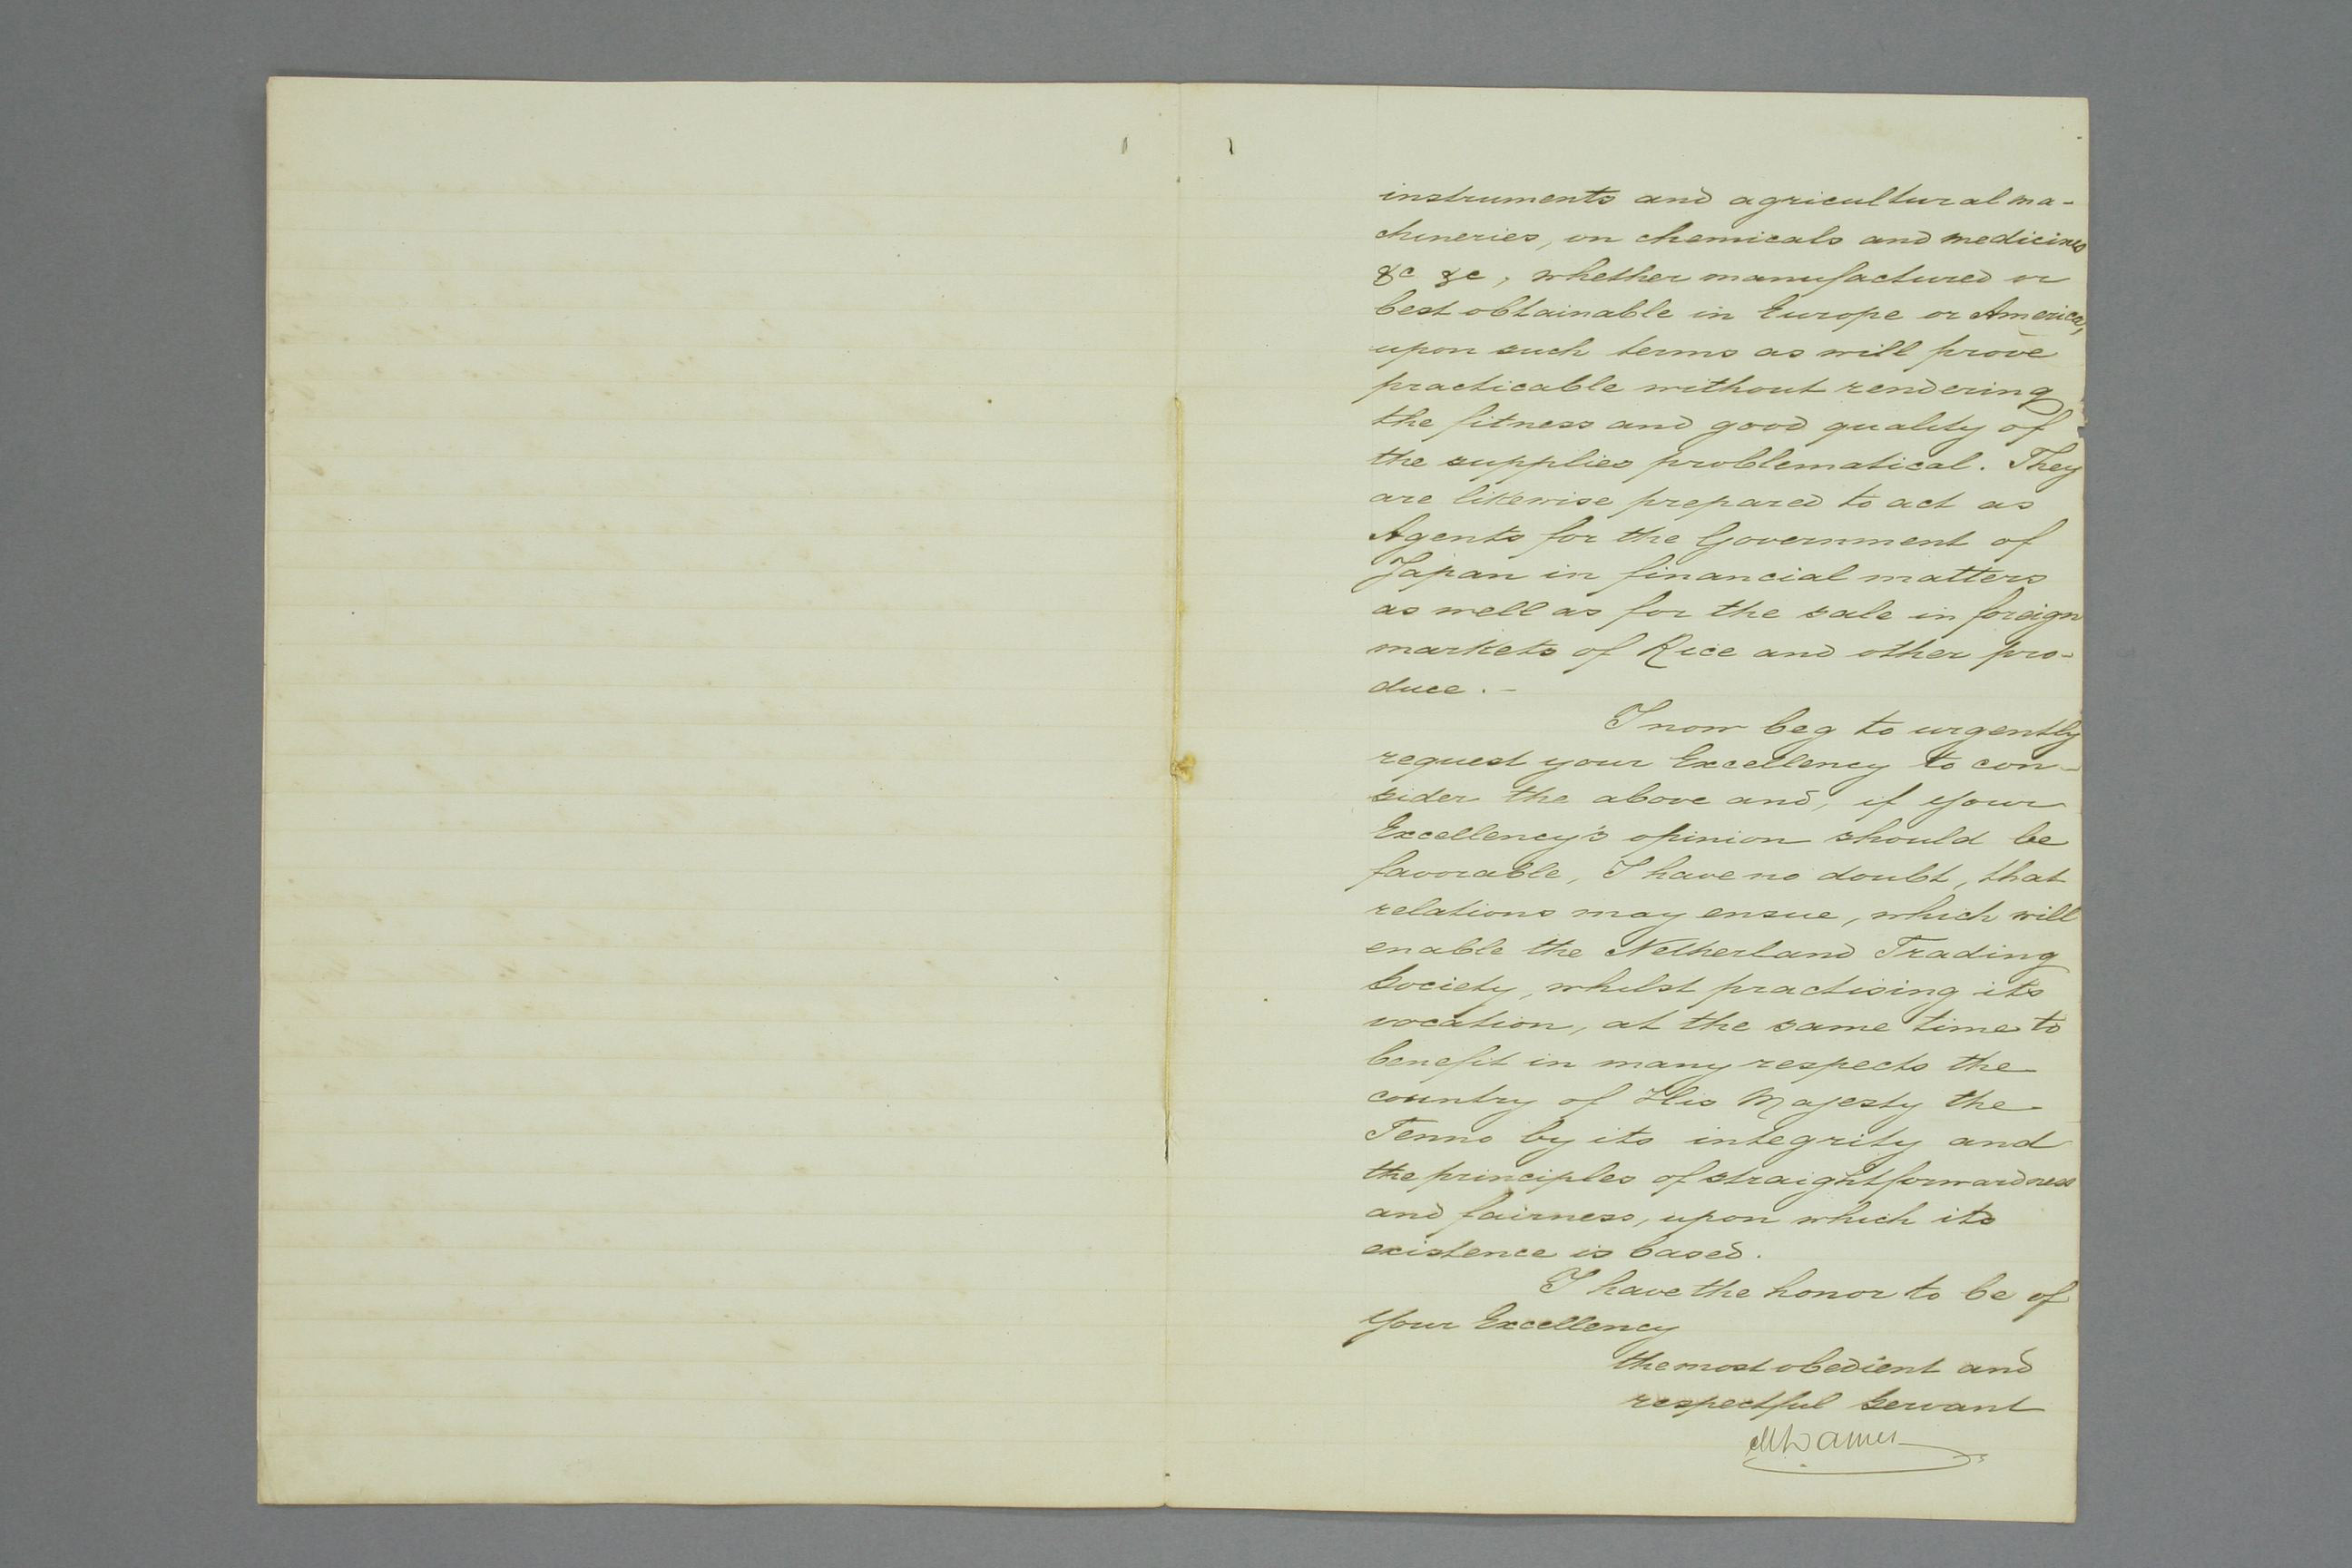 instruments and agricultural ma-
chineries, on chemicals and medicines
&c &c, whether manufactured or
best obtainable in Europe or America,
upon such terms as will prove
practicable without rendering
the fitness and good quality of
the supplies problematical. They
are likewise prepared to act as
Agents for the Government of
Japan in financial matters
as well as for the sale in foreign
markets of Rice and other pro-
duce. -
I now beg to urgently
request your Excellency to con-
sider the above and, if your
Excellency's opinion should be
favorable, I have no doubt, that
relations may ensue, which will
enable the Netherland Trading
Society, whilst practising its
vocation, at the same time to
benefit in many respects the
country of His Majesty the
Tenno by its integrity and
the principles of straightforwardness
and fairness, upon which its
existence is based.
I have the honor to be of
Your Excellency
the most obedient and
respectful Servant